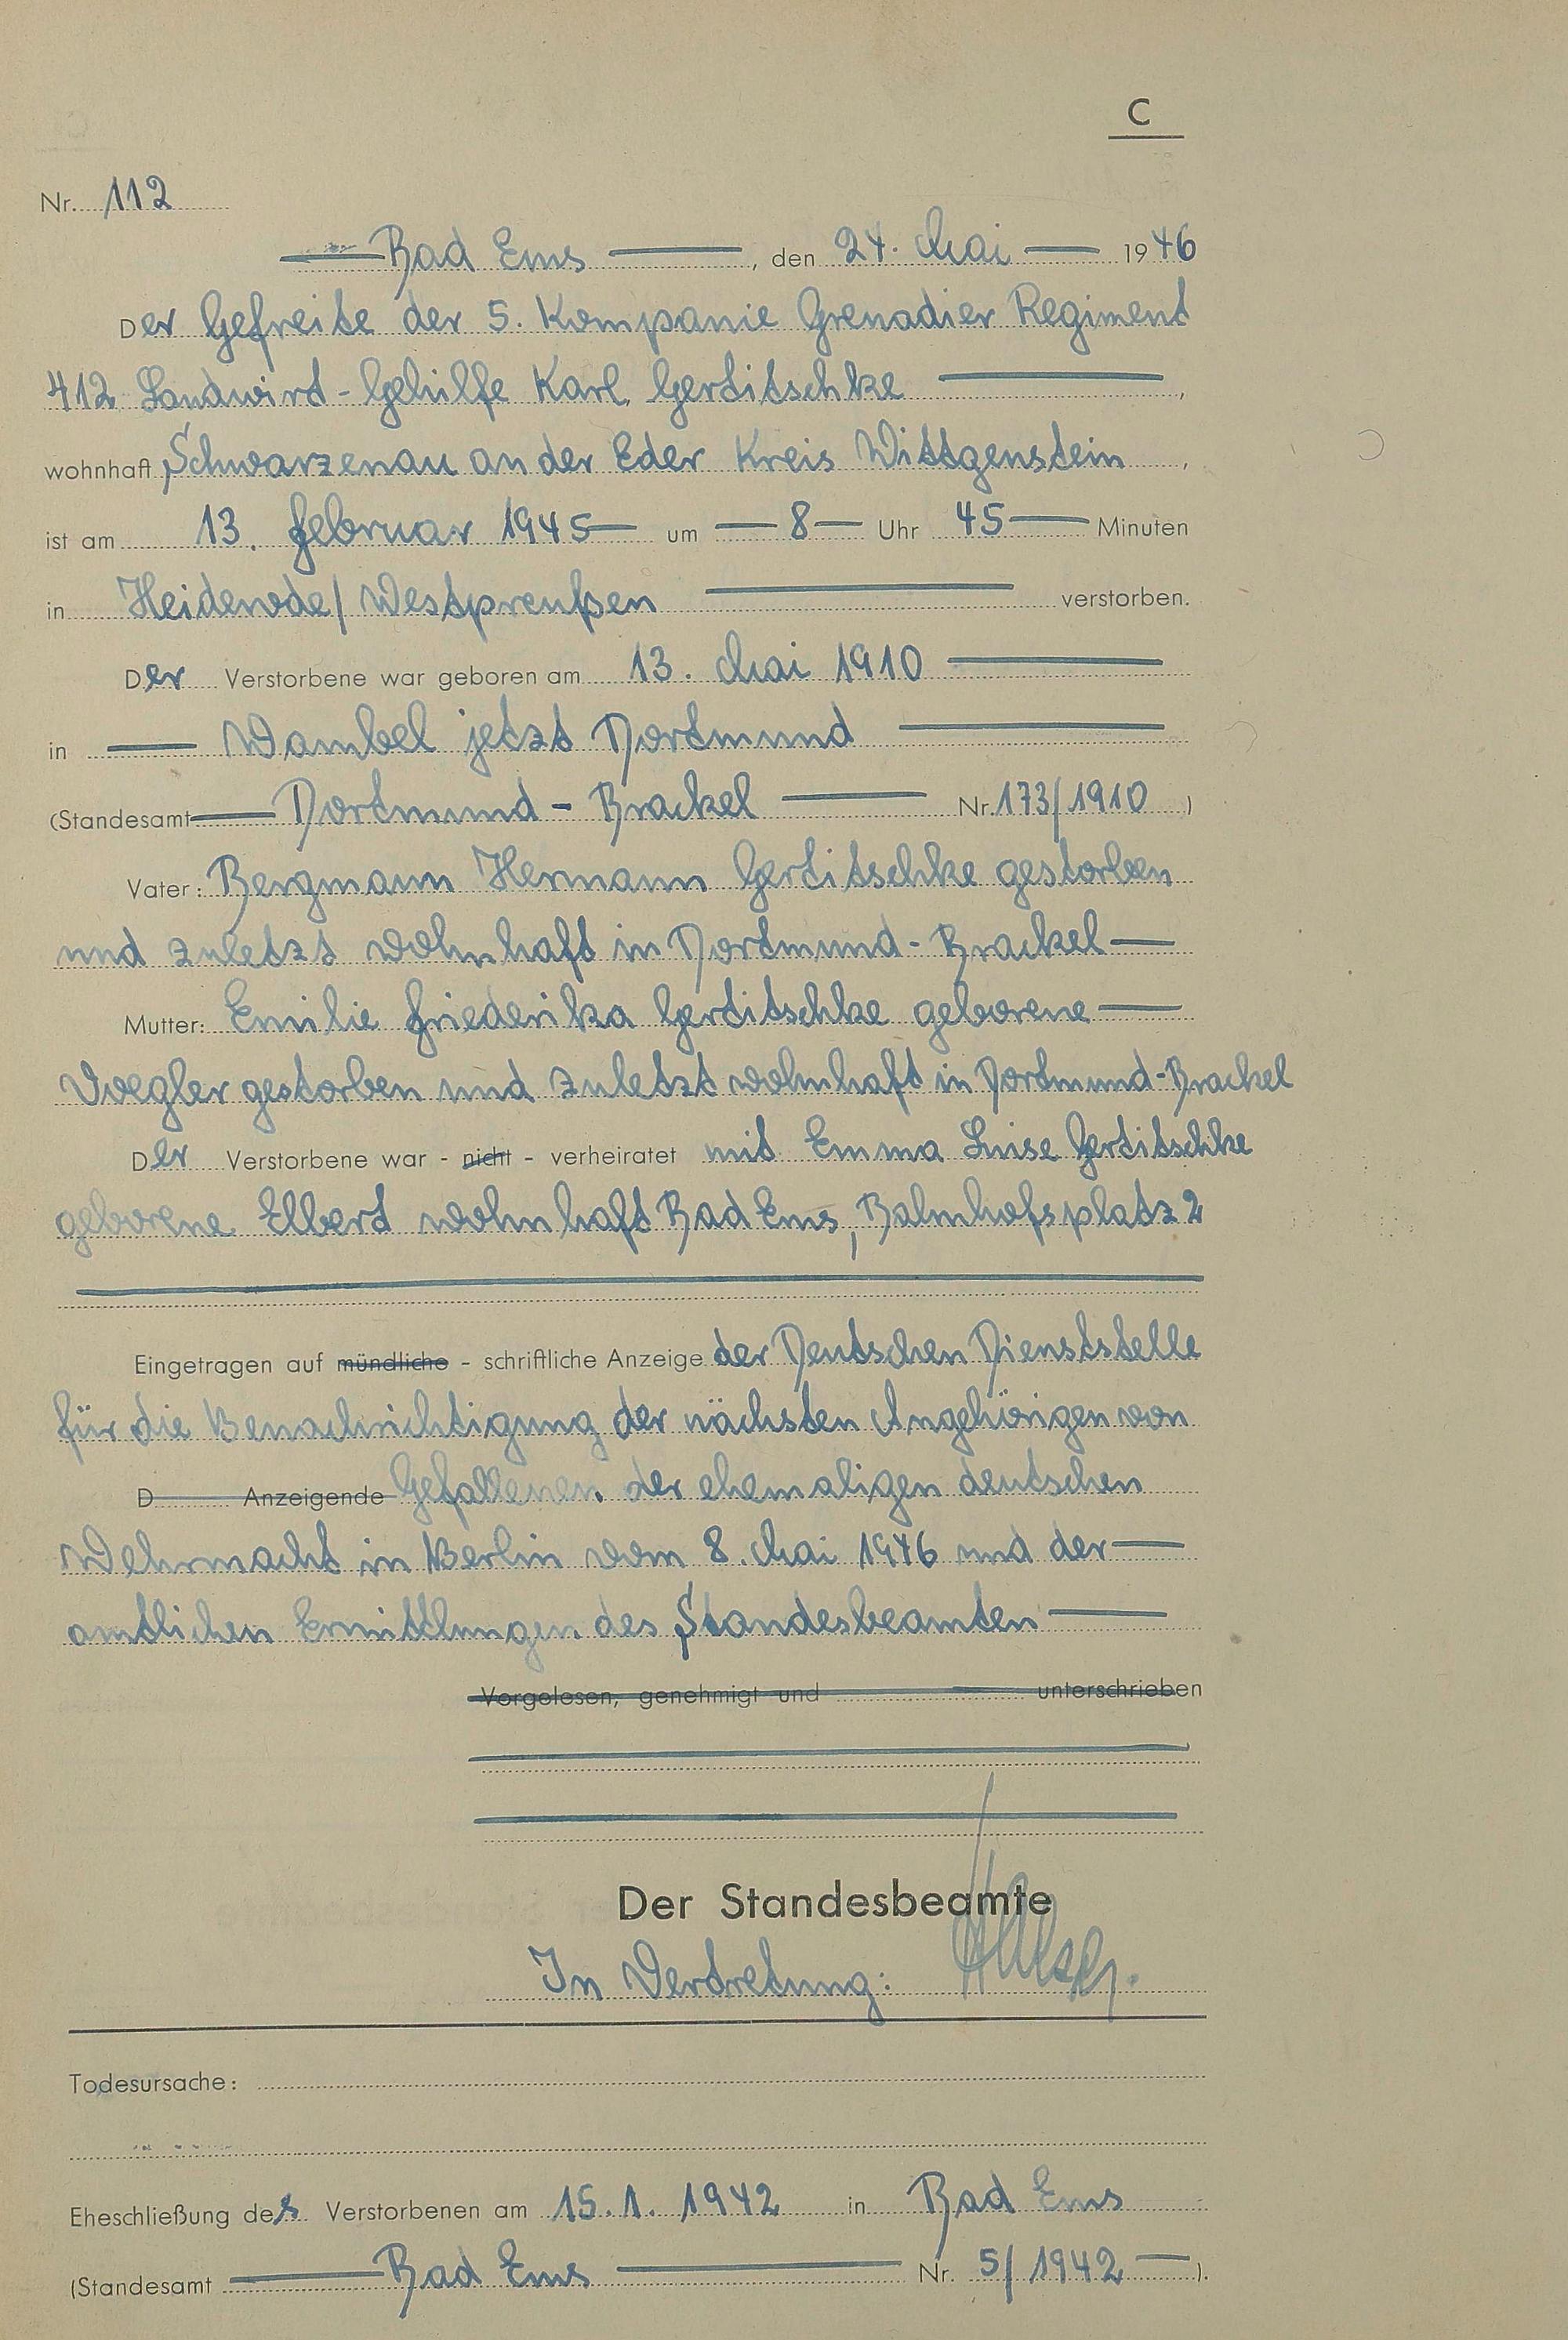 C
Nr. 112
Bad Ems, den 24. Mai 1946
Der Gefreite der 5. Kompanie Grenadier Regiment
412 Landwird-Gehilfe Karl Gertitschke,
wohnhaft Schwarzenau an der Eder Kreis Wittgenstein,
ist am 13. Februar 1945 um 8 Uhr 45 Minuten
in Heiderode/Westpreußen verstorben.
Der Verstorbene war geboren am 13. Mai 1910
in Wambel jetzt Dortmund
(Standesamt Dortmund-Brackel Nr. 173/1910)
Vater: Bergmann Hermann Gertitschke gestorben
und zuletzt wohnhaft in Dortmund-Brackel
Mutter: Emilie Friederika Gertitschke geborene
Voegler gestorben und zuletzt wohnhaft in Dortmund-Brackel
Der Verstorbene war - nicht - verheiratet mit Emma Luise Gertitschke
geborene Elbert wohnhaft Bad Ems, Bahnhofsplatz 2
Eingetragen auf mündliche - schriftliche Anzeige der Deutschen Dienststelle
für die Benachrichtigung der nächsten Angehörigen von
D Anzeigende Gefallenen der ehemaligen deutschen
Wehrmacht in Berlin vom 8. Mai 1946 und der
amtlichen Ermittlungen des Standesbeamten
Vorgelesen, genehmigt und unterschrieben
Der Standesbeamte
In Vertretung:
Todesursache:
Eheschließung des Verstorbenen am 15.1.1942 in Bad Ems
(Standesamt Bad Ems Nr. 5/1942).